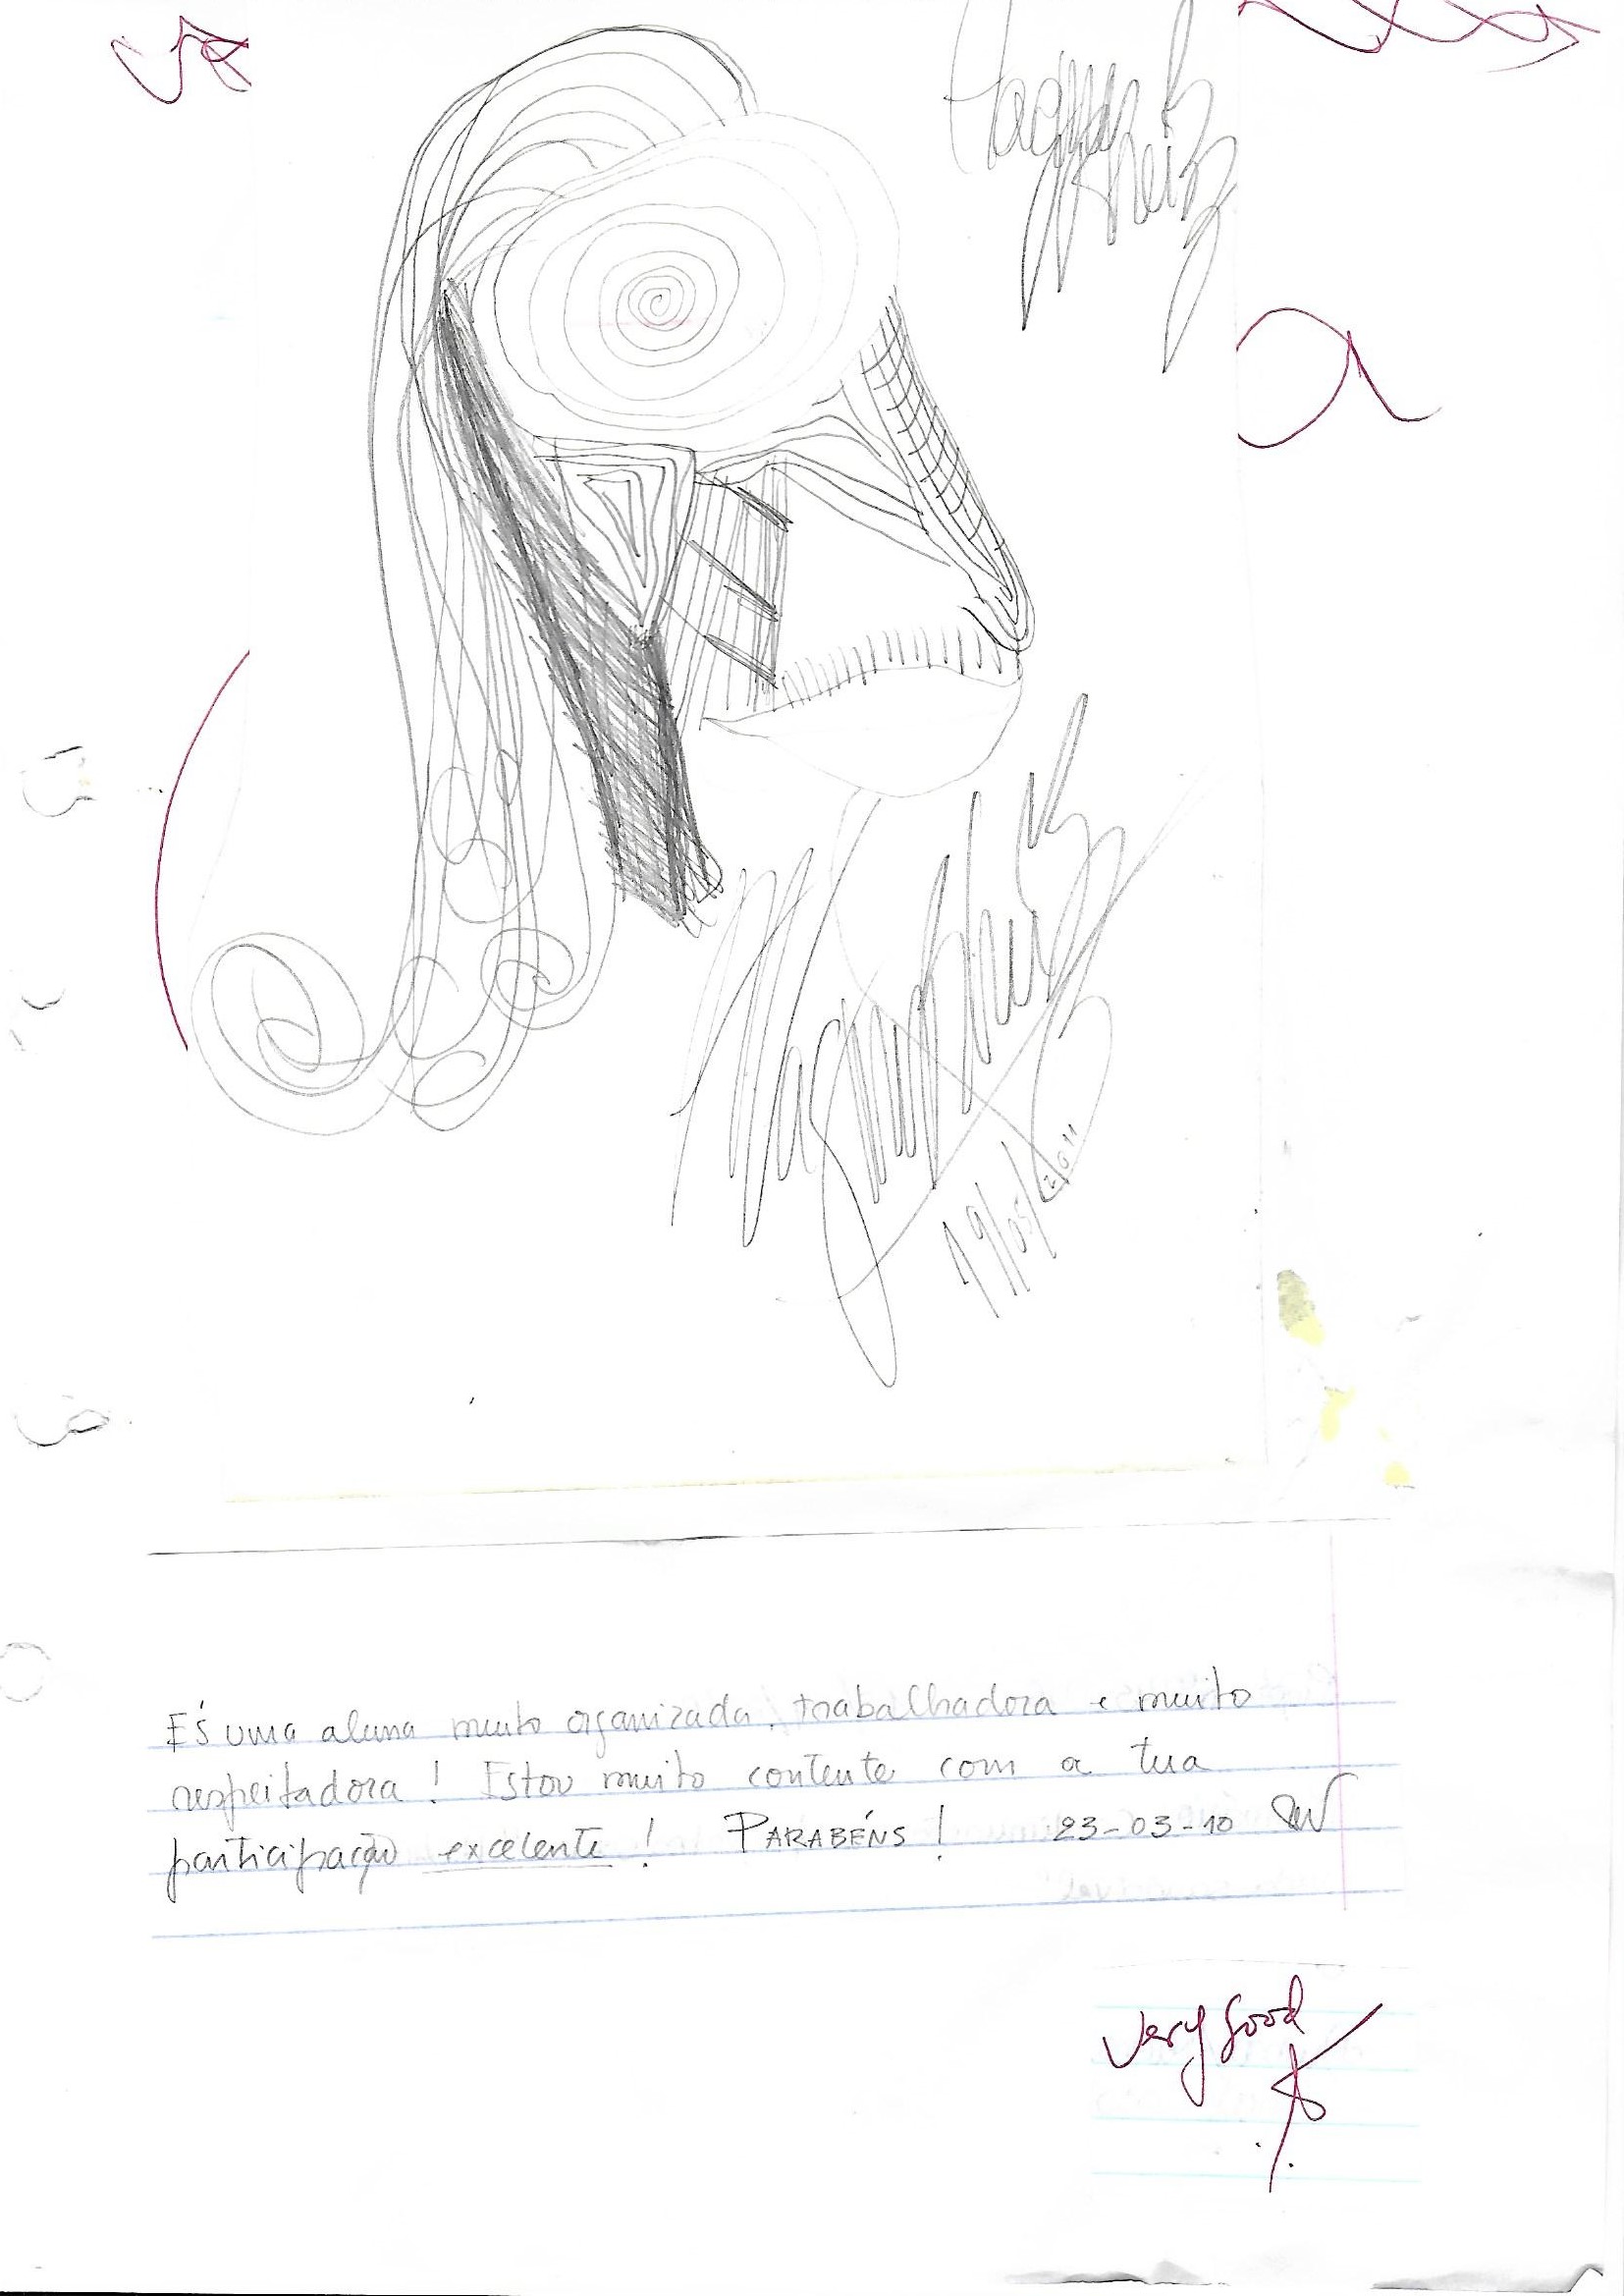 19/05/2011
És uma aluna muito organizada, trabalhadora e muito
respeitadora! Estou muito contente com a tua
participação excelente! PARABÉNS! 23-03-10
Very good